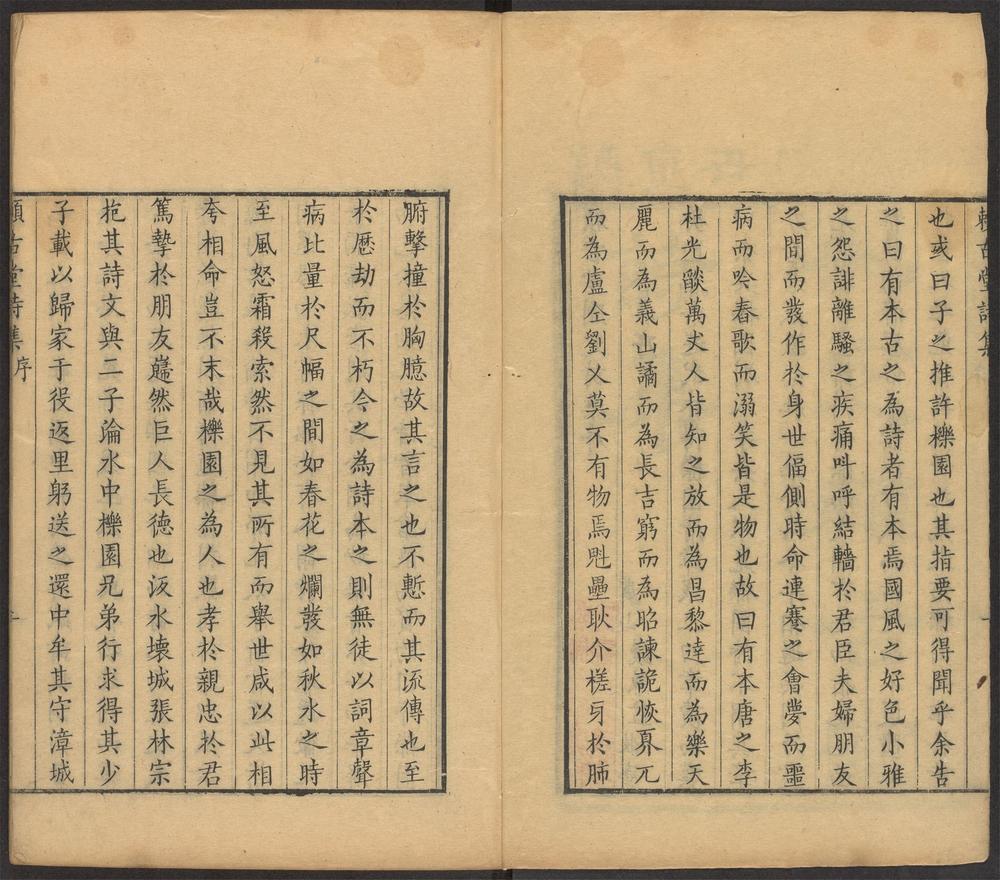 賴古堂詩集
也或曰子之推許櫟園也其指要可得聞乎余告
之曰有本古之為詩者有本焉國風之好色小雅
之怨誹離騷之疾痛呌呼結轖於君臣夫婦朋友
之間而發作於身世偪側時命連蹇之會夢而噩
病而吟舂歌而溺笑皆是物也故曰有本唐之李
杜光燄萬丈人皆知之放而為昌黎逹而為樂天
麗而為義山譎而為長吉窮而為昭諫詭恢奡兀
而為盧仝劉乂莫不有物焉魁壘耿介槎牙於肺
腑擊撞於胸臆故其言之也不慙而其流傳也至
於歷劫而不朽今之為詩本之則無徒以詞章聲
病比量於尺幅之間如春花之爛發如秋水之時
至風怒霜殺索然不見其所有而舉世咸以此相
夸相命豈不末哉櫟園之為人也孝於親忠於君
篤摯於朋友巋然巨人長德也汳水壞城張林宗
抱其詩文與二子淪水中櫟園兄弟行求得其少
子載以歸家于役返里躬送之還中牟其守漳城
賴古堂詩集 序